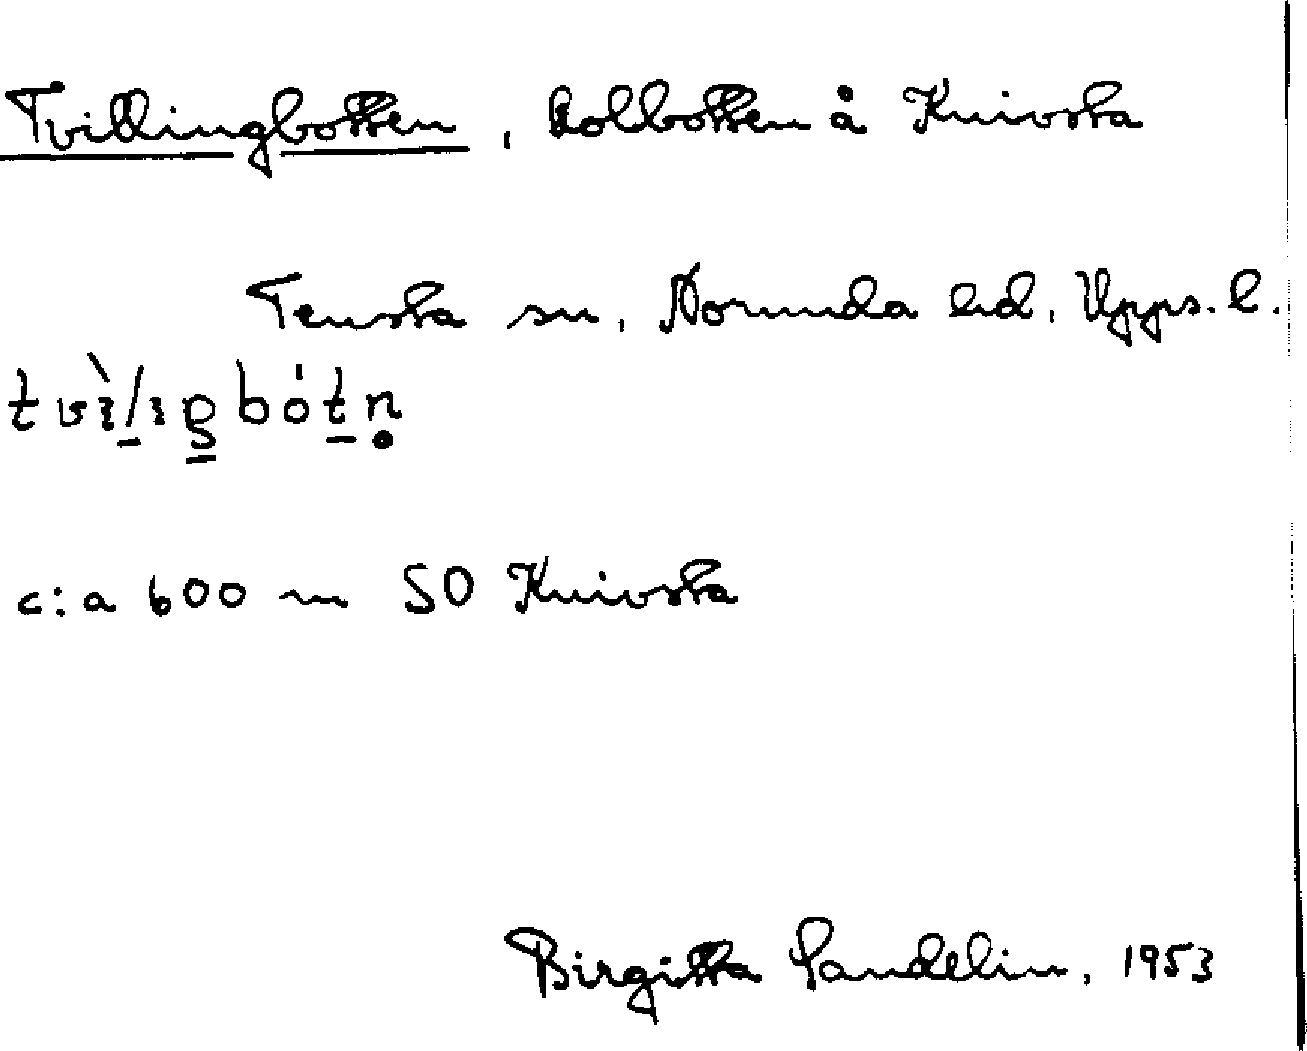 Tvillingbotten, kolbotten å Knivsta
Tensta sn, Norunda hd, Upps. l.
c:a 600 m SO Knivsta
Birgitta Sandelin, 1953